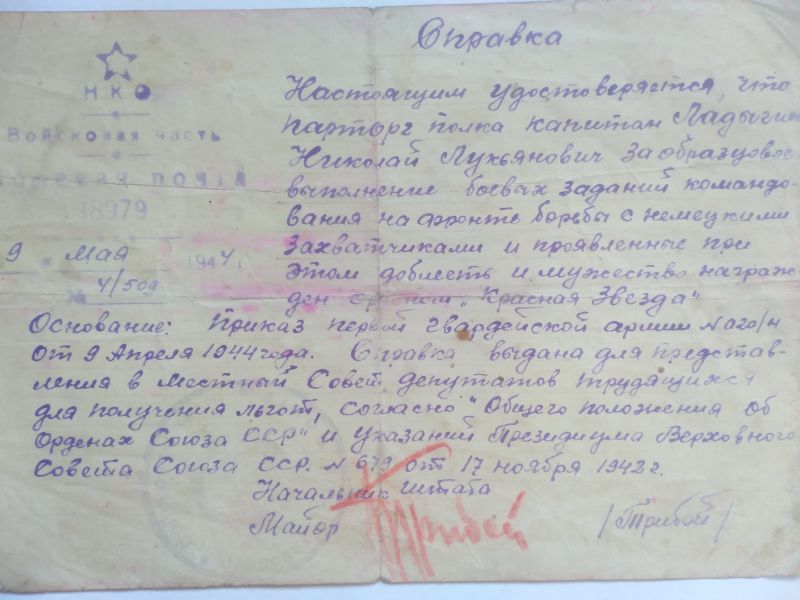 Справка
НКО
Войсковая часть
полевая почта
18979
9 мая 1944 г.
№ 4/509
Настоящим удостоверяется, что
парторг полка капитан Ладыгин
Николай Лукьянович за образцовое
выполнение боевых заданий командо-
вания на фронте борьбы с немецкими
захватчиками и проявленные при
этом доблесть и мужество награж-
ден орденом „Красная Звезда"
Основание: Приказ первой гвардейской армии №020/н
от 9 Апреля 1944 года. Справка выдана для представ-
ления в местный Совет депутатов трудящихся
для получения льгот, согласно "Общего положения об
Орденах Союза ССР" и указаний Президиума Верховного
Совета Союза ССР. № 679 от 17 ноября 1942 г.
Начальник штаба
Майор Трибой /Трибой/